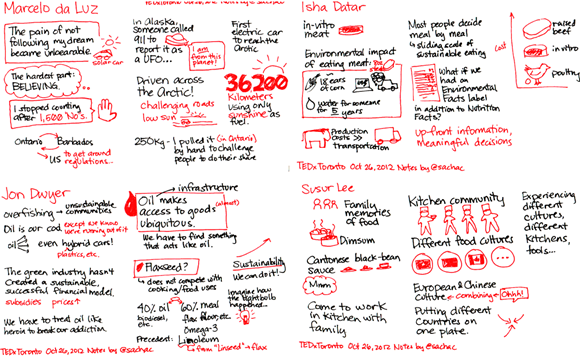 Marcelo da Luz
The pain of not
following my dream
became unbearable.
solar car
The hardest part:
BELIEVING.
I stopped counting
after 1,500 No's.
Ontario
Barbados
US
to get around
regulations...
TEDxToronto Oct 26, 2012 Notes by @sachac
In Alaska,
someone called
911 to
report it as
a UFO...
I am
from this
planet!
First
electric car
to reach the
Arctic
Driven across
the Arctic!
challenging roads
low sun
36200
Kilometers
Using only
sunshine as
fuel.
250kg - I pulled it (in Ontario)
by hand to challenge
people to do their share
Isha Datar
in-vitro
meat
Environmental impact
of eating meat:
18 years
of corn
water for someone
for 5 years
Production
costs >>
Transportation
Most people decide
meal by meal
a sliding scale of
sustainable eating
What if we
had an
Environmental
Facts label
in addition to Nutrition
Facts?
up-front information,
meaningful decisions
cost
raised
beef
in vitro
poultry
TEDxToronto Oct 26, 2012 Notes by @sachac
Jon Dwyer
overfishing → unsustainable
communities
Oil is our cod
except we know
we're running out of it
oil
even hybrid cars!
plastics, etc.
The green industry hasn't
created a sustainable,
successful financial model.
subsidies price↑
We have to treat oil like
heroin to break our addiction.
TEDxToronto Oct 26, 2012 Notes by @sachac
infrastructure
Oil makes
access to goods (almost)
Ubiquitous.
We have to find something
that acts like oil.
Flaxseed?
does not compete with
cooking/food uses
40% oil
biodiesel,
etc.
60% meal
flax flour, etc.
Omega-3
Precedent: Linoleum
from "Linseed" → flax
Sustainability
We can do it!
Imagine how
the lightbulb
happened...
Susur Lee
Family
memories
of food
Dimsum
Cantonese black-bean
sauce
Mmm
Come to work
in kitchen with
family
Kitchen community
Different food cultures
European & Chinese
culture → combining → Ohhh!
Putting different
countries on
one plate.
Experiencing
different
cultures,
different
Kitchens,
tools...
TEDxToronto Oct 26, 2012 Notes by @sachac